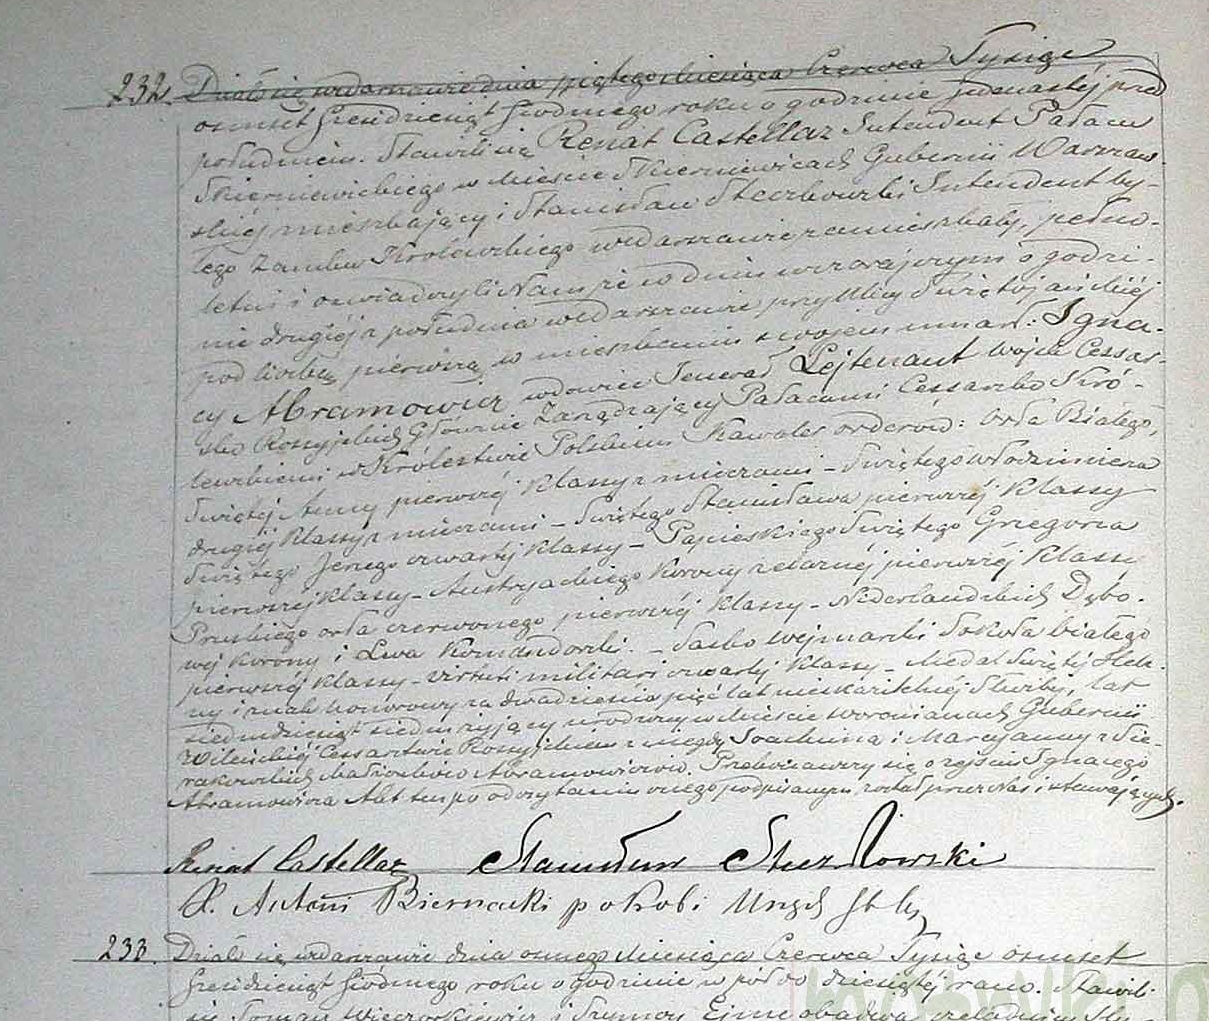 232. Działo się w Warszawie dnia piątego Miesiąca Czerwca Tysiąc
osmset sześćdziesiąt siódmego roku o godzinie jedenastej przed
południem. Stawili się Renat Castellaz Intendent Pałacu
Skierniewickiego w Mieście Skierniewicach Gubernii Warszaw-
skiéj mieszkający i Stanisław Stuczkowski Intendent by-
łego Zamku Królewskiego w Warszawie zamieszkały, pełno-
letni i oświadczyli Nam że w dniu wczorajszym o godzi-
nie drugiéj z południa w Warszawie przy Ulicy Święto jańskiéj
pod liczbą pierwszą w mieszkaniu swojem umarł: Igna-
cy Abramowicz wdowiec Jenerał Lejtenant Wojsk Cessar-
sko Rossyjskich Głównie Zarządzający Pałacami Cessarsko Kró-
lewskiemi w Królestwie Polskiem Kawaler orderów: Orła Białego,
Świętej Anny pierwszéj Klassy z mieczami – Świętego Włodzimierza
drugiéj Klassy z mieczami – Świętego Stanisława pierwszéj Klassy
Świętego Jerzego czwartéj Klassy – Papieskiego Świętego Grzegorza
pierwszéj Klassy – Austryackiego Korony żelaznéj pierwszéj Klassy
Pruskiego orła czerwonego pierwszéj Klassy – Niderlandzkich Dębo-
wéj Korony i Lwa Komandorski. – Sasko Wejmarski Sokoła białego
pierwszéj Klassy – virtuti militari czwartéj Klassy – Medal Świętéj Hele-
ny i znak honorowy za dwadzieścia pięć lat nieskazitelnéj Służby, lat
siedmdziesiąt siedm żyjący urodzony w Mieście Wornianach Gubernii
Wileńskiéj Cessartwie Rossyjskiem z niegdy Joachima i Maryjanny z Sie-
rakowskich Małżonków Abramowiczów. Przekonawszy się o zejściu Ignacego
Abramowicza Akt ten po odczytaniu onego podpisanym został przez Nas i stawających.
Renat Castellaz Stanisław
X. Antoni Biernacki
233. Działo się w Warszawie dnia osmego Miesiąca Czerwca Tysiąc osmset
sześćdziesiąt siódmego roku o godzinie w pół do dziesiątéj rano. Stawili
się Roman Więckowicz i Szymon obadwa